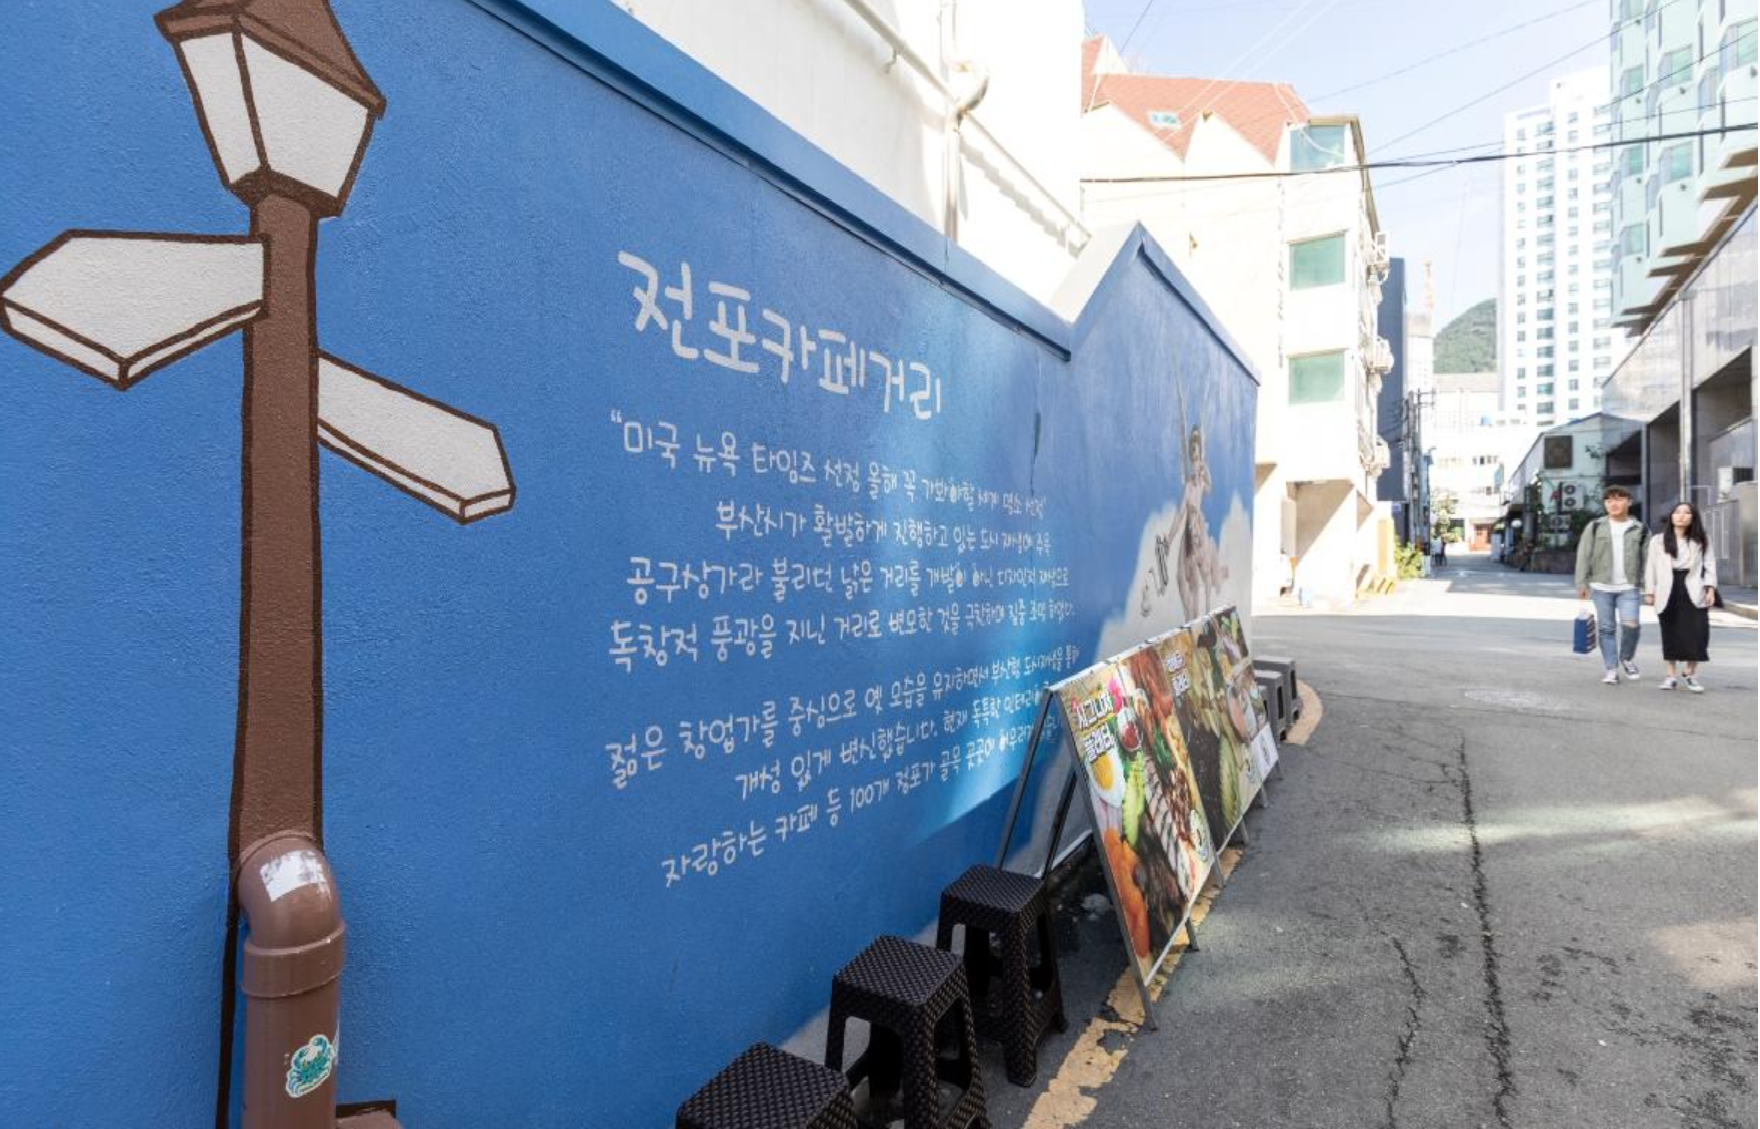 전포카페거리
“미국 뉴욕 타임즈 선정 올해 꼭 가봐야할 세계 명소 선정"
부산시가 활발하게 진행하고 있는 도시 재생에 주목
공구상가라 불리던 낡은 거리를 개발이 아닌 디자인적 재생으로
독창적 풍광을 지닌 거리로 변모한 것을 극찬하며 집중 조명 하였다.
젊은 창업가를 중심으로 옛 모습을 유지하면서 부산형 도시재생을 통해
개성 있게 변신했습니다. 현재 독특한 인테리어
자랑하는 카페 등 100개 점포가 골목 곳곳에
시그니처
플래터